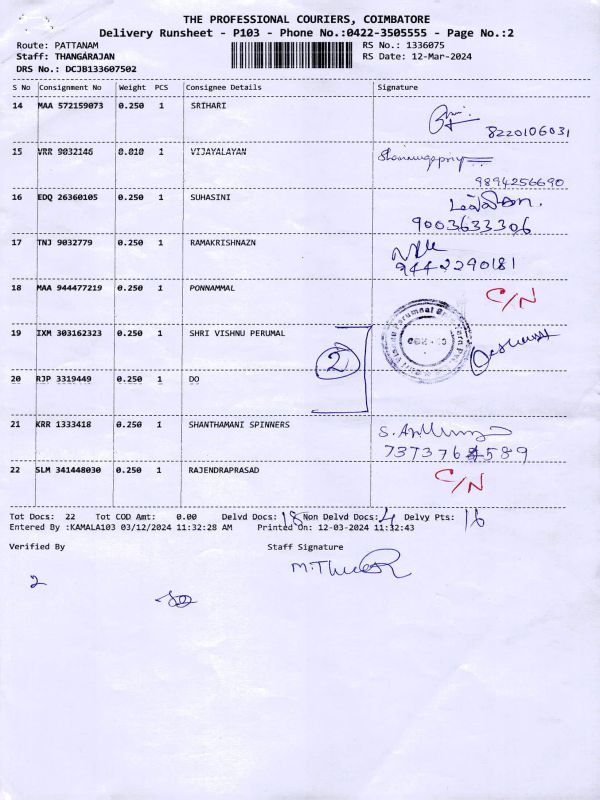 THE PROFESSIONAL COURIERS, COIMBATORE
Delivery Runsheet - P103 - Phone No.:0422-3505555 - Page No.:2
Route: PATTANAM RS No.: 1336075
Staff: THANGARAJAN RS Date: 12-Mar-2024
DRS No.: DCJB133607502
S No Consignment No Weight PCS Consignee Details Signature
14 MAA 572159073 0.250 1 SRIHARI
8220106031
15 VRR 9032146 0.010 1 VIJAYALAYAN Shanmugapriya
9894256690
16 EDQ 26360105 0.250 1 SUHASINI
9003633306
17 TNJ 9032779 0.250 1 RAMAKRISHNAZN
9442290181
18 MAA 944477219 0.250 1 PONNAMMAL C/N
19 IXM 303162323 0.250 1 SHRI VISHNU PERUMAL
2
20 RJP 3319449 0.250 1 DO
21 KRR 1333418 0.250 1 SHANTHAMANI SPINNERS
7373764589
22 SLM 341448030 0.250 1 RAJENDRAPRASAD C/N
Tot Docs: 22 Tot COD Amt: 0.00 Delvd Docs: 18 Non Delvd Docs: 4 Delvy Pts: 16
Entered By :KAMALA103 03/12/2024 11:32:28 AM Printed On: 12-03-2024 11:32:43
Verified By Staff Signature
2